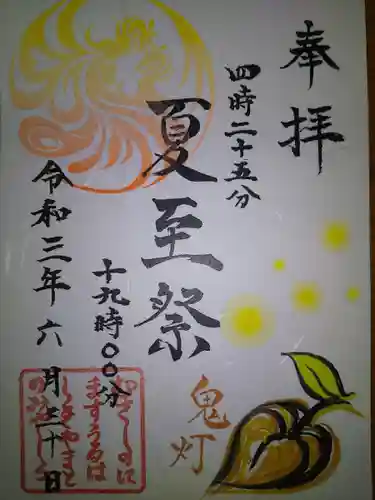 奉拝
四時二十五分
夏至祭
十九時〇〇分
令和三年六月二十一日
鬼灯